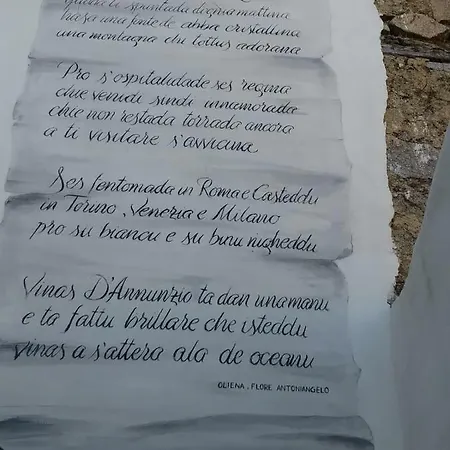 has a una fonte de abba cristallina
una montagna chi tottus adorana
Pro s'ospitalidade ses regina
chie venidi sindi innamorada
chie non restada torrada ancora
a ti visitare s'avvicina
Ses fentomada in Roma e Casteddu
in Torino, Venezia e Milano
pro su biancu e su binu nigheddu
Vinas D'Annunzio ta dan una manu
e ta fattu brillare che isteddu
vinas a s'attera ala de oceanu
OLIENA, FLORE ANTONIANGELO